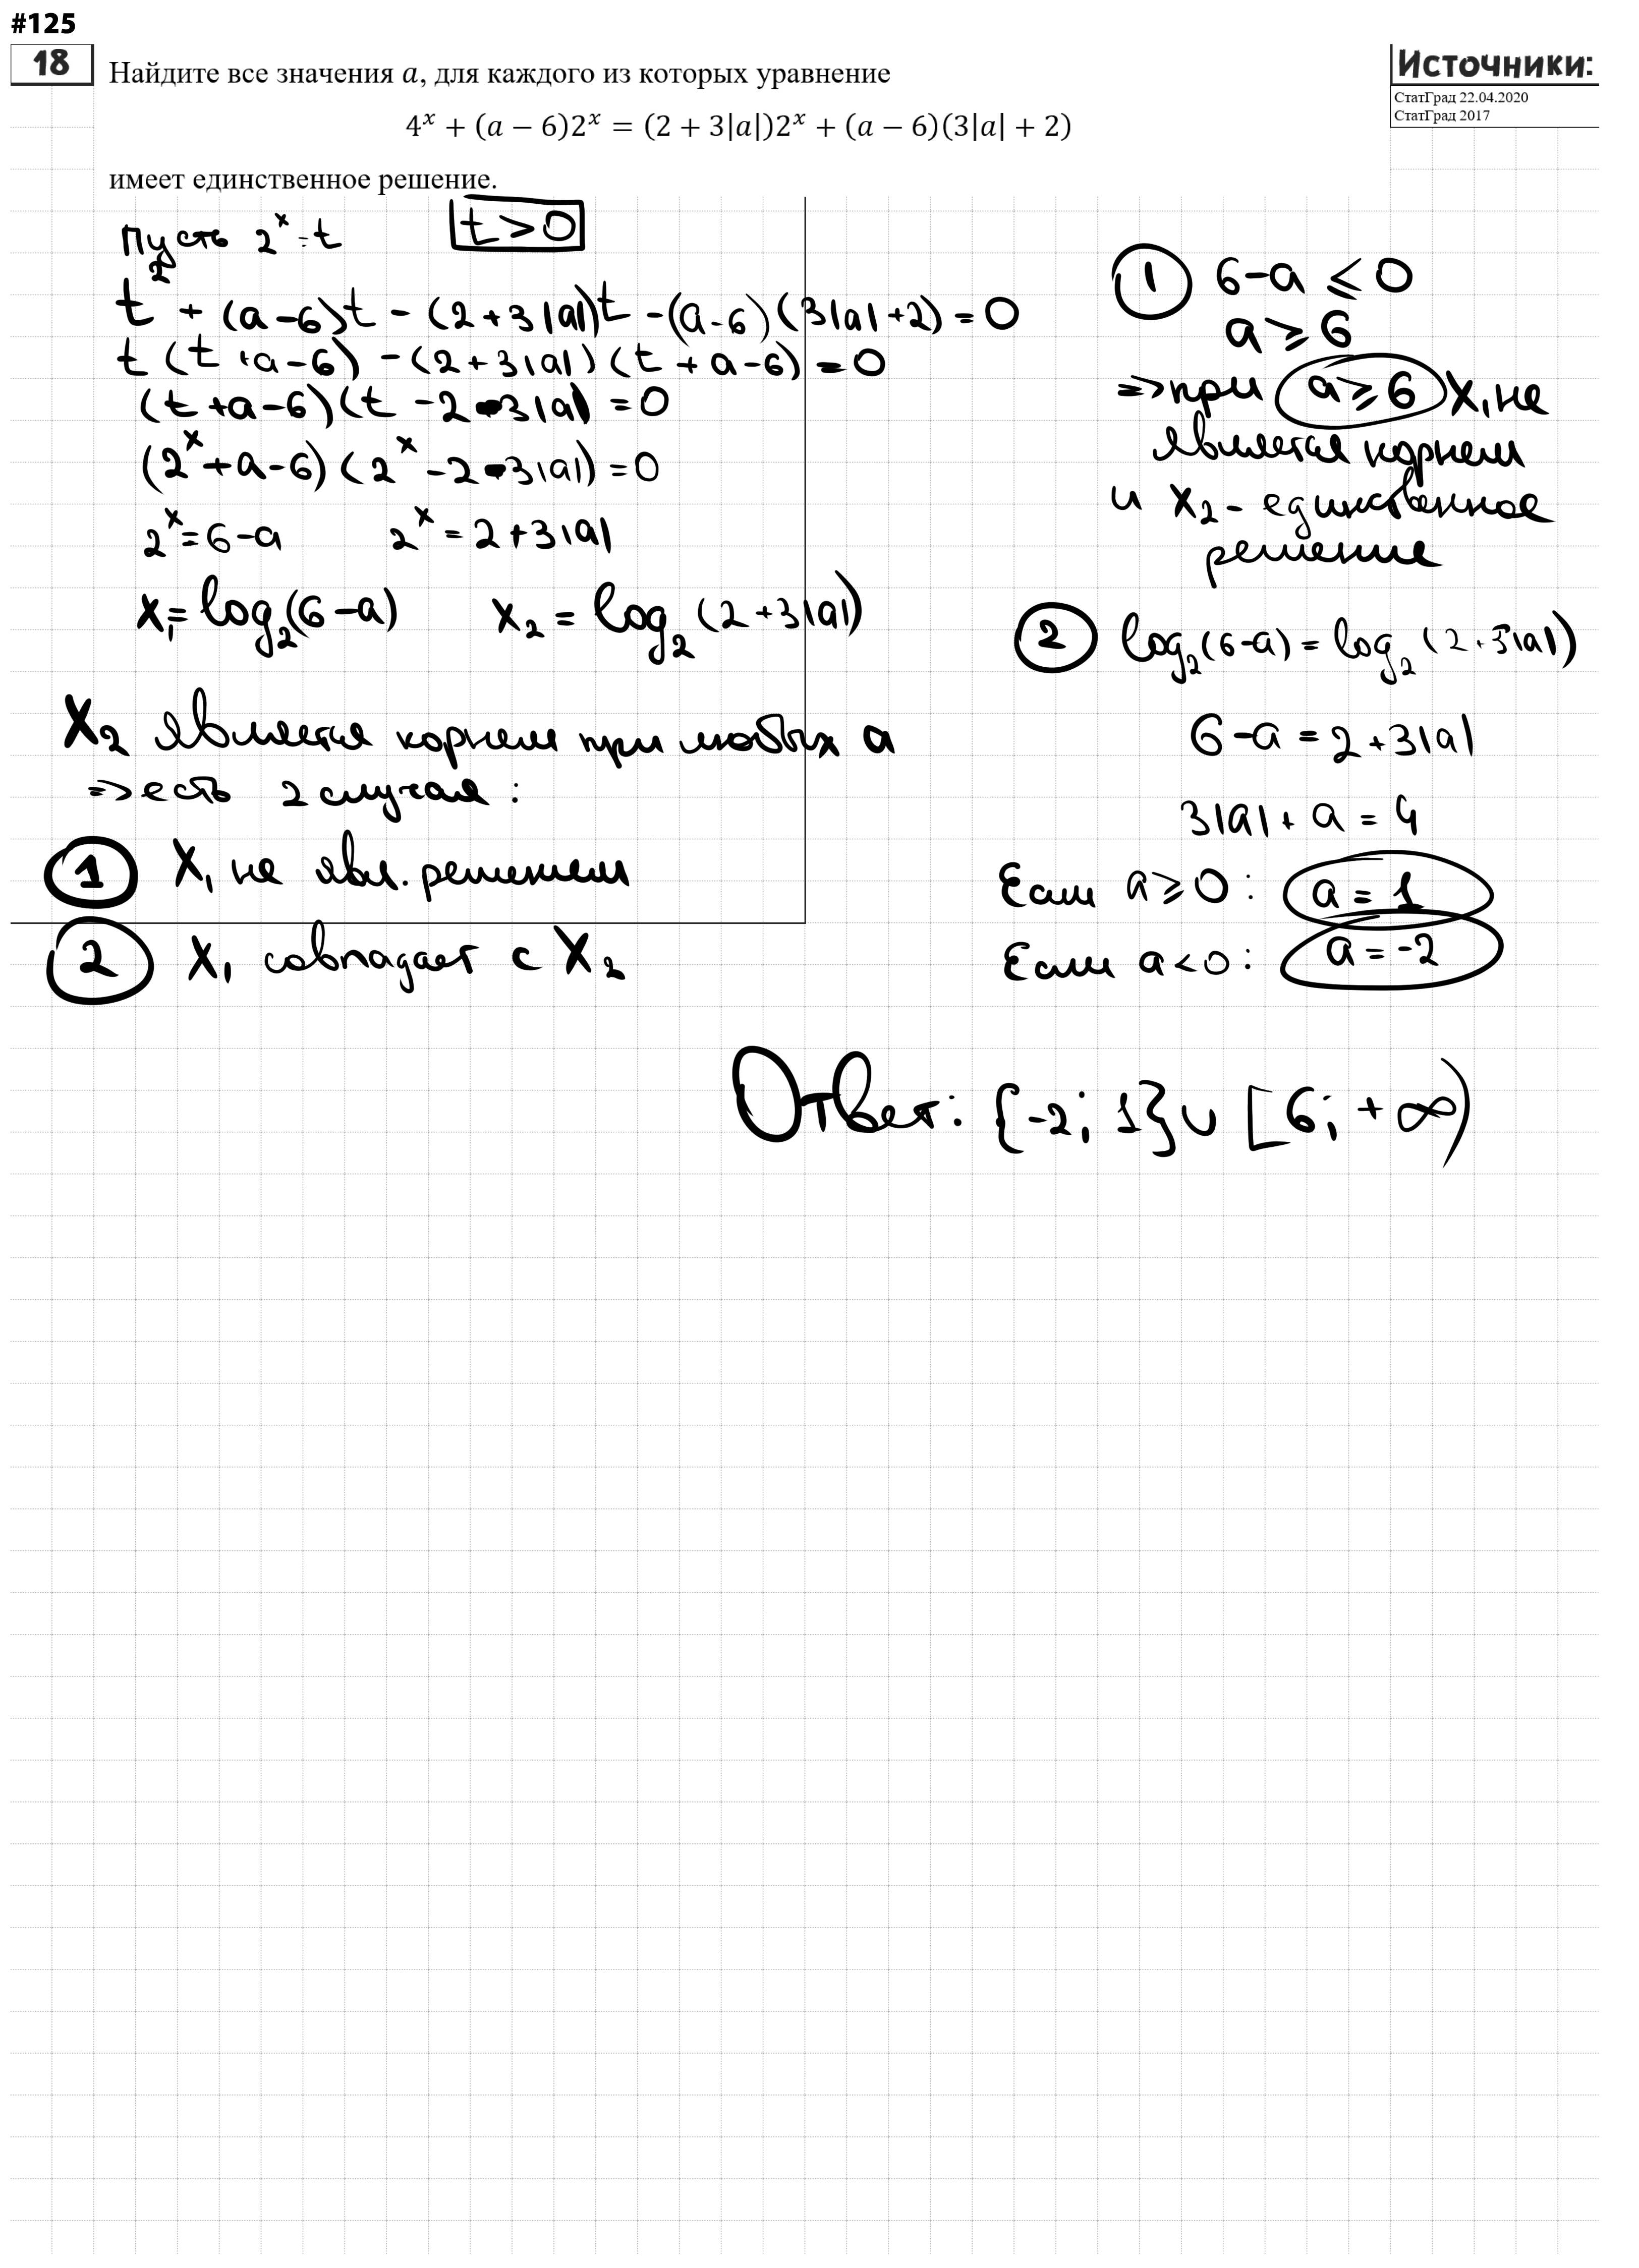 #125
18
Найдите все значения a, для каждого из которых уравнение
4^x + (a − 6)2^x = (2 + 3|a|)2^x + (a − 6)(3|a| + 2)
имеет единственное решение.
Источники:
СтатГрад 22.04.2020
СтатГрад 2017
Пусть 2^x = t
t > 0
t^2 + (a−6)t − (2+3|a|)t − (a−6)(3|a|+2) = 0
t(t+a−6) − (2+3|a|)(t+a−6) = 0
(t+a−6)(t−2−3|a|) = 0
(2^x+a−6)(2^x−2−3|a|) = 0
2^x = 6−a 2^x = 2+3|a|
x₁ = log₂(6−a) x₂ = log₂(2+3|a|)
x₂ является корнем при любых a
=> есть 2 случая:
1 x₁ не явл. решением
2 x₁ совпадает с x₂
1 6−a ⩽ 0
a ⩾ 6
=> при a ⩾ 6 x₁ не
является корнем
и x₂ - единственное
решение
2 log₂(6−a) = log₂(2+3|a|)
6−a = 2+3|a|
3|a| + a = 4
Если a ⩾ 0: a = 1
Если a < 0: a = −2
Ответ: {−2; 1} ∪ [6; +∞)